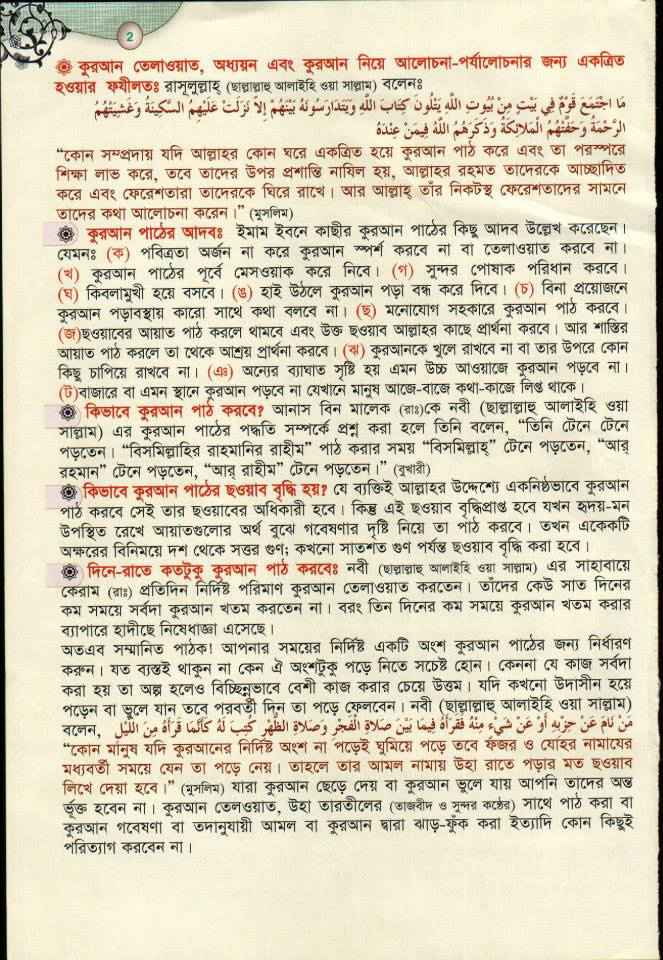 2
কুরআন তেলাওয়াত, অধ্যয়ন এবং কুরআন নিয়ে আলোচনা-পর্যালোচনার জন্য একত্রিত
হওয়ার ফযীলতঃ রাসূলুল্লাহ্ (ছাল্লাল্লাহু আলাইহি ওয়া সাল্লাম) বলেনঃ
مَا اجْتَمَعَ قَوْمٌ فِي بَيْتٍ مِنْ بُيُوتِ اللَّهِ يَتْلُونَ كِتَابَ اللَّهِ وَيَتَدَارَسُونَهُ بَيْنَهُمْ إِلاَّ نَزَلَتْ عَلَيْهِمُ السَّكِينَةُ وَغَشِيَتْهُمُ
الرَّحْمَةُ وَحَفَّتْهُمُ الْمَلاَئِكَةُ وَذَكَرَهُمُ اللَّهُ فِيمَنْ عِنْدَهُ
“কোন সম্প্রদায় যদি আল্লাহর কোন ঘরে একত্রিত হয়ে কুরআন পাঠ করে এবং তা পরস্পরে
শিক্ষা লাভ করে, তবে তাদের উপর প্রশান্তি নাযিল হয়, আল্লাহর রহমত তাদেরকে আচ্ছাদিত
করে এবং ফেরেশতারা তাদেরকে ঘিরে রাখে। আর আল্লাহ্ তাঁর নিকটস্থ ফেরেশতাদের সামনে
তাদের কথা আলোচনা করেন।” (মুসলিম)
কুরআন পাঠের আদবঃ ইমাম ইবনে কাছীর কুরআন পাঠের কিছু আদব উল্লেখ করেছেন।
যেমনঃ (ক) পবিত্রতা অর্জন না করে কুরআন স্পর্শ করবে না বা তেলাওয়াত করবে না।
(খ) কুরআন পাঠের পূর্বে মেসওয়াক করে নিবে। (গ) সুন্দর পোষাক পরিধান করবে।
(ঘ) কিবলামুখী হয়ে বসবে। (ঙ) হাই উঠলে কুরআন পড়া বন্ধ করে দিবে। (চ) বিনা প্রয়োজনে
কুরআন পড়াবস্থায় কারো সাথে কথা বলবে না। (ছ) মনোযোগ সহকারে কুরআন পাঠ করবে।
(জ)ছওয়াবের আয়াত পাঠ করলে থামবে এবং উক্ত ছওয়াব আল্লাহর কাছে প্রার্থনা করবে। আর শাস্তির
আয়াত পাঠ করলে তা থেকে আশ্রয় প্রার্থনা করবে। (ঝ) কুরআনকে খুলে রাখবে না বা তার উপরে কোন
কিছু চাপিয়ে রাখবে না। (ঞ) অন্যের ব্যাঘাত সৃষ্টি হয় এমন উচ্চ আওয়াজে কুরআন পড়বে না।
(ট)বাজারে বা এমন স্থানে কুরআন পড়বে না যেখানে মানুষ আজে-বাজে কথা-কাজে লিপ্ত থাকে।
কিভাবে কুরআন পাঠ করবে? আনাস বিন মালেক (রাঃ)কে নবী (ছাল্লাল্লাহু আলাইহি ওয়া
সাল্লাম) এর কুরআন পাঠের পদ্ধতি সম্পর্কে প্রশ্ন করা হলে তিনি বলেন, “তিনি টেনে টেনে
পড়তেন। “বিসমিল্লাহির রাহমানির রাহীম” পাঠ করার সময় “বিসমিল্লাহ্” টেনে পড়তেন, “আর্
রহমান” টেনে পড়তেন, “আর্ রাহীম” টেনে পড়তেন।” (বুখারী)
কিভাবে কুরআন পাঠের ছওয়াব বৃদ্ধি হয়? যে ব্যক্তিই আল্লাহর উদ্দেশ্যে একনিষ্ঠভাবে কুরআন
পাঠ করবে সেই তার ছওয়াবের অধিকারী হবে। কিন্তু এই ছওয়াব বৃদ্ধিপ্রাপ্ত হবে যখন হৃদয়-মন
উপস্থিত রেখে আয়াতগুলোর অর্থ বুঝে গবেষণার দৃষ্টি নিয়ে তা পাঠ করবে। তখন একেকটি
অক্ষরের বিনিময়ে দশ থেকে সত্তর গুণ; কখনো সাতশত গুণ পর্যন্ত ছওয়াব বৃদ্ধি করা হবে।
দিনে-রাতে কতটুকু কুরআন পাঠ করবেঃ নবী (ছাল্লাল্লাহু আলাইহি ওয়া সাল্লাম) এর সাহাবায়ে
কেরাম (রাঃ) প্রতিদিন নির্দিষ্ট পরিমাণ কুরআন তেলাওয়াত করতেন। তাঁদের কেউ সাত দিনের
কম সময়ে সর্বদা কুরআন খতম করতেন না। বরং তিন দিনের কম সময়ে কুরআন খতম করার
ব্যাপারে হাদীছে নিষেধাজ্ঞা এসেছে।
অতএব সম্মানিত পাঠক! আপনার সময়ের নির্দিষ্ট একটি অংশ কুরআন পাঠের জন্য নির্ধারণ
করুন। যত ব্যস্তই থাকুন না কেন ঐ অংশটুকু পড়ে নিতে সচেষ্ট হোন। কেননা যে কাজ সর্বদা
করা হয় তা অল্প হলেও বিচ্ছিন্নভাবে বেশী কাজ করার চেয়ে উত্তম। যদি কখনো উদাসীন হয়ে
পড়েন বা ভুলে যান তবে পরবর্তী দিন তা পড়ে ফেলবেন। নবী (ছাল্লাল্লাহু আলাইহি ওয়া সাল্লাম)
বলেন, مَنْ نَامَ عَنْ حِزْبِهِ أَوْ عَنْ شَيْءٍ مِنْهُ فَقَرَأَهُ فِيمَا بَيْنَ صَلاَةِ الْفَجْرِ وَصَلاَةِ الظُّهْرِ كُتِبَ لَهُ كَأَنَّمَا قَرَأَهُ مِنَ اللَّيْلِ
“কোন মানুষ যদি কুরআনের নির্দিষ্ট অংশ না পড়েই ঘুমিয়ে পড়ে তবে ফজর ও যোহর নামাযের
মধ্যবর্তী সময়ে যেন তা পড়ে নেয়। তাহলে তার আমল নামায় উহা রাতে পড়ার মত ছওয়াব
লিখে দেয়া হবে।” (মুসলিম) যারা কুরআন ছেড়ে দেয় বা কুরআন ভুলে যায় আপনি তাদের অন্ত
র্ভূক্ত হবেন না। কুরআন তেলওয়াত, উহা তারতীলের (তাজবীদ ও সুন্দর কন্ঠের) সাথে পাঠ করা বা
কুরআন গবেষণা বা তদানুযায়ী আমল বা কুরআন দ্বারা ঝাড়-ফুঁক করা ইত্যাদি কোন কিছুই
পরিত্যাগ করবেন না।